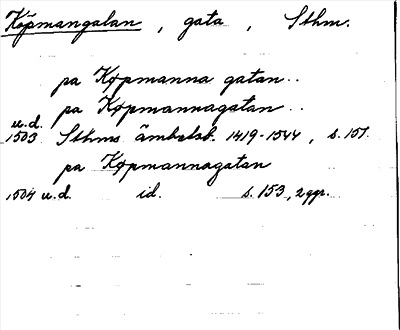 Köpmangatan, gata, Sthm.
pa Køpmanna gatan..
pa Køpmannagatan..
u.d.
1503 Sthms ämbetsb. 1419-1544, s. 151.
pa Køpmannagatan
1504 u.d. id. s. 153, 2 ggr.